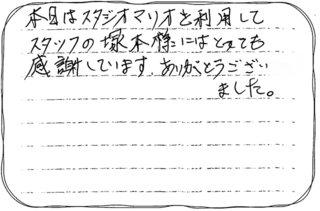 本日はスタジオマリオを利用して
スタッフの塚本様にはとても
感謝しています.ありがとうござい
ました。